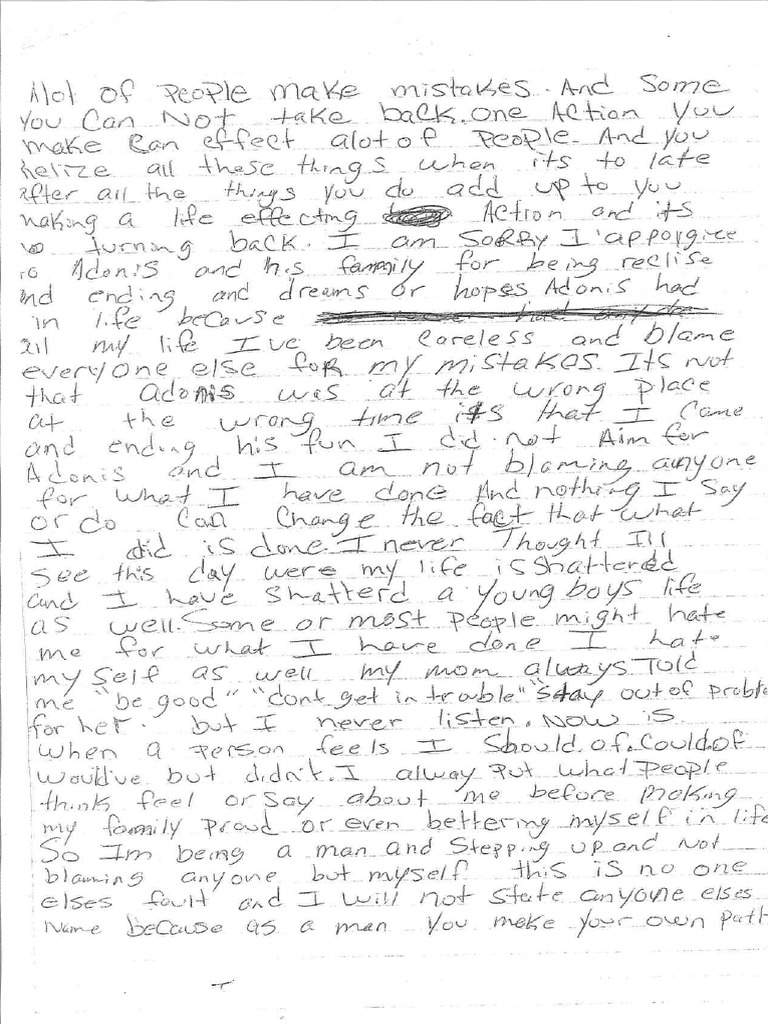 Alot of People make mistakes. And Some
you Can Not take back. One Action you
make Can effect alot of People. And you
relize all these things when its to late
after all the things you do add up to you
making a life effecting Action and its
no turning back. I am SORRY I appoligice
to Adonis and his fammily for being reclise
and ending and dreams or hopes Adonis had
in life because
all my life I've been Careless and blame
everyone else for my mistakes. Its not
that Adonis was at the wrong place
at the wrong time its that I Came
and ending his fun I did not Aim for
Adonis and I am not blaming anyone
for what I have done And nothing I Say
or do Can Change the fact that what
I did is done. I never Thought Ill
See this day were my life is Shattered
and I have Shatterd a young boys life
as well. Some or most People might hate
me for what I have done I hate
my self as well my mom always Told
me "be good" "dont get in trouble" "Stay out of Proble
for her. but I never listen. NOW is
When a Person feels I Should.of.Could.of
Would've but didn't. I alway Put what People
think feel or say about me before making
my family Proud or even bettering myself in life
So Im being a man and Stepping up and Not
blaming anyone but myself this is no one
elses fault and I will not State anyone elses
Name because as a man you make your own Path